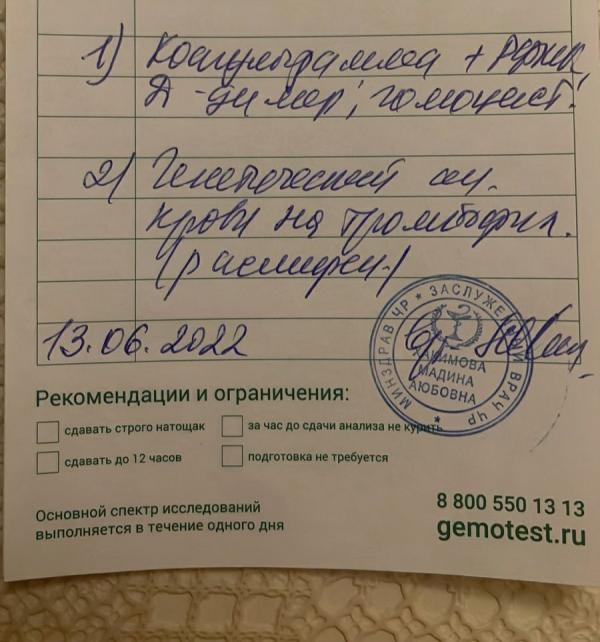 1) Коагулограмма + РФМК,
Д-димер, гомоцист.
2) Генетический ан.
крови на тромбофил.
(расширен.)
13.06.2022
МИНЗДРАВ ЧР * ЗАСЛУЖЕННЫЙ ВРАЧ ЧР *
МАДИНА
АЮБОВНА
Рекомендации и ограничения:
сдавать строго натощак
за час до сдачи анализа не курить
сдавать до 12 часов
подготовка не требуется
Основной спектр исследований
выполняется в течение одного дня
8 800 550 13 13
gemotest.ru